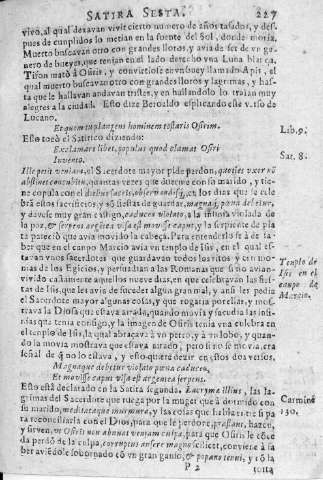 SATIRA SESTA. 227
vivo, al qual dexavan vivir cierto numero de años tasados, y des-
pues de cunplidos lo metian en la fuente del Sol, donde moria.
Muerto buscavan otro con grandes lloros, y avia de ser de un ge-
nero de bueyes, que tenian en el lado derecho una Luna blanca.
Tifon matò à Osiris, y convirtiose en un buey llamado Apis, el
qual muerto buscavan otro con grandes lloros y lagrimas, y has-
ta que le hallavan andavan tristes, y en hallandolo lo traian muy
alegres à la ciudad. Esto dize Beroaldo esplicando este verso de
Lucano.
Et quem tu plangens hominem testaris Osirim.
Lib. 9.
Esto tocò el Satirico diziendo:
Exclamare libet, populus quod clamat Osiri
Sat. 8.
Invento.
Ille petit veniam, el Sacerdote mayor pide perdon, quoties uxor non
abstinet concubitu, quantas vezes que duerme con su marido, y tie-
ne copula con el diebus sacris, observandisq́, en los dias que le cele-
bra estos sacrificios, y se an de guardar, magnaq́, pœna debetur,
y devese muy gran castigo, caduceo violato, a la injuria violada
de la paz, & serpens argentea visa est movisse caput, y la serpiente de pla
ta pareciò que avia movido la cabeça. Para entender esto se à de sa-
ber que en el canpo Marcio avia un tenplo de Isis, en el qual es-
tavan unos sacerdotes que guardavan todos los ritos y ceremo-
nias de los Egicios, y persuadian a las Romanas que si no avian
vivido castamente aquellos nueve dias, en que celebravan las fies-
tas de Isis, que les avia de suceder algun gran mal, y ansi les pedia
el Sacerdote mayor algunas cosas, y que rogaria por ellas, y mos-
trava la Diosa que estava airada, quando movia y sacudia las insi-
nias que tenia consigo, y la imagen de Osiris tenia una culebra en
el tenplo de Isis, la qual abraçava à un perro, y à un lobo, y quan-
do la movia mostrava que estava airado, pero si no se movia, era
señal de q̃ no lo estava, y esto quiere dezir en estos dos versos.
Tenplo de
Isis en el
canpo de
Marcio.
Magnaque debetur violato pœna caduceo,
Et movisse caput visa est argentea serpens.
Esto està declarado en la Satira segunda. Lacrymæ illius, las la-
grimas del Sacerdote que ruega por la muger que à dormido con
su marido, meditataque murmura, y las cosas que habla entre si pa
ra reconciliarla con el Dios, para que le perdone, præstant, hazen,
y sirven, ut Osiris non abnuat veniam culpæ, para que Osiris le conce
da perdõ de la culpa, corruptus ansere magno scilicet, conviene à sa
ber aviendole sobornado cõ un gran ganso, & popano tenui, y cõ la
Carmine
130.
P 2 torta